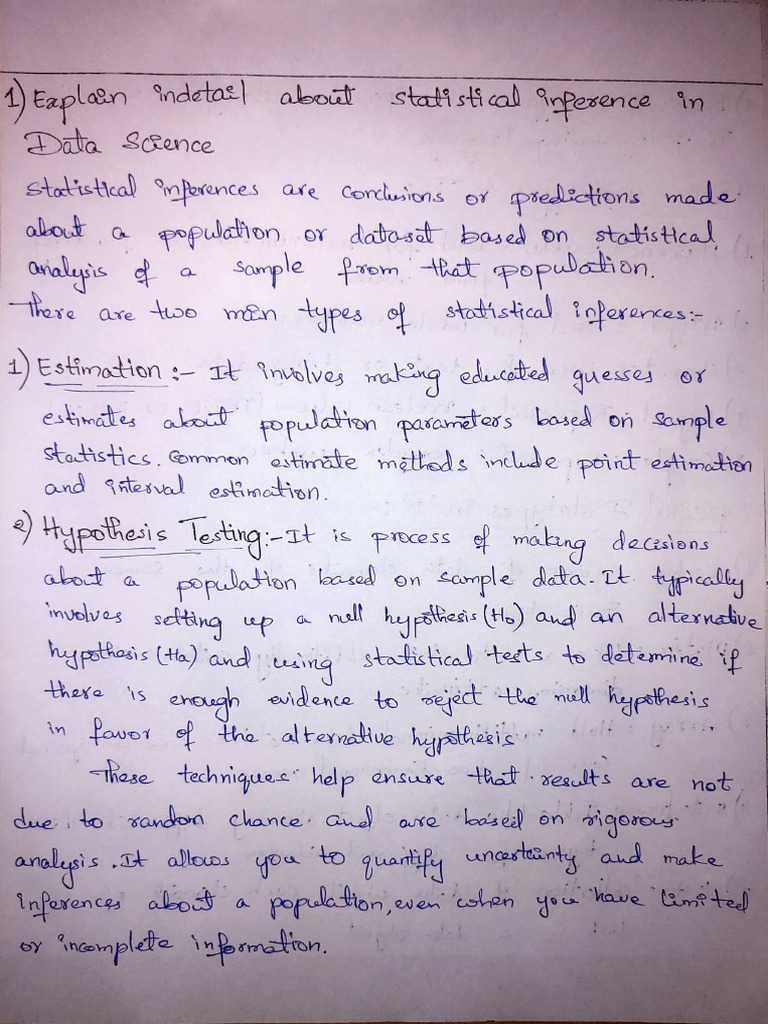 1) Explain indetail about statistical inference in
Data Science
Statistical inferences are conclusions or predictions made
about a population or dataset based on statistical
analysis of a sample from that population.
There are two main types of statistical inferences:-
1) Estimation :- It involves making educated guesses or
estimates about population parameters based on sample
statistics. Common estimate methods include point estimation
and interval estimation.
2) Hypothesis Testing:- It is process of making decisions
about a population based on sample data. It typically
involves setting up a null hypothesis (H0) and an alternative
hypothesis (Ha) and using statistical tests to determine if
there is enough evidence to reject the null hypothesis
in favor of the alternative hypothesis
These techniques help ensure that results are not
due to random chance and are based on rigorous
analysis. It allows you to quantify uncertainty and make
inferences about a population, even when you have limited
or incomplete information.